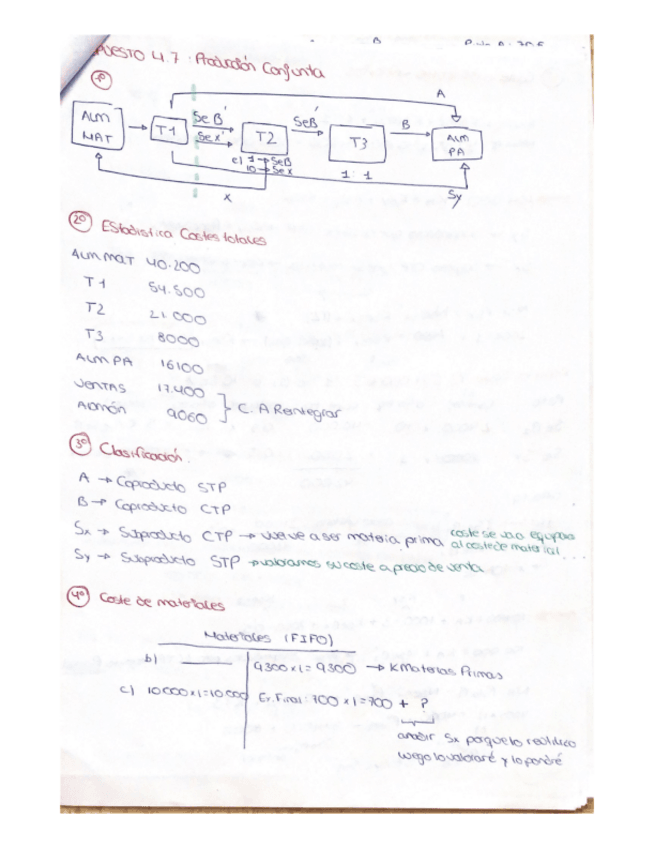 B
PUESTO 4.7 : Producción Conjunta
1º
A
ALM MAT
T1
Se B'
Se X'
T2
Se B'
T3
B
ALM PA
c) 1 → Se B
10 → Se X
1 : 1
X
Sy
2º Estadística Costes totales
ALM MAT 40.200
T1 54.500
T2 21.000
T3 8000
ALM PA 16100
VENTAS 17.400
Admón 9060 } C. A Reintegrar
3º Clasificación.
A → Coproducto STP
B → Coproducto CTP
Sx → Subproducto CTP → vuelve a ser materia prima coste se va a equiparar
al coste de material
Sy → Subproducto STP → valoramos su coste a precio de venta
4º Coste de materiales
Materiales (FIFO)
b) 9300 x 1 = 9300 → K Materias Primas
c) 10000 x 1 = 10000 Ex. Final: 700 x 1 = 700 + ?
añadir Sx porque lo reutilizo
luego lo valoraré y lo pondré